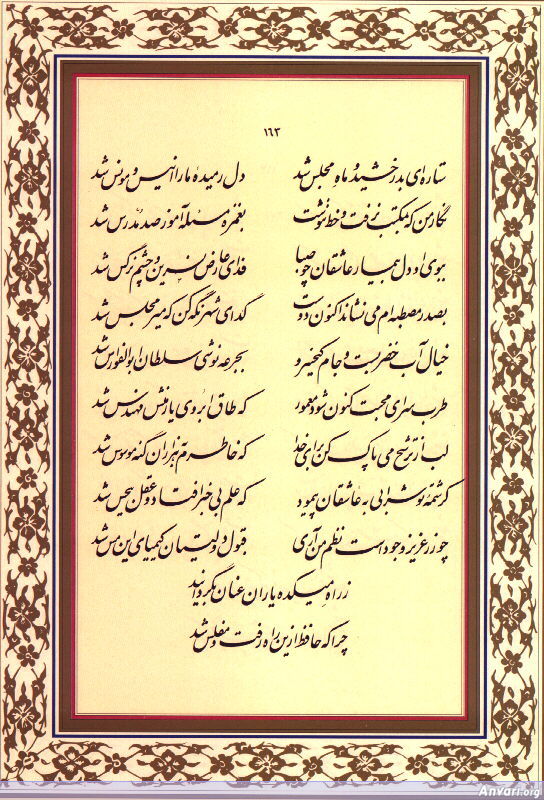 ۱۶۳
ستاره‌ای بدرخشید و ماه مجلس شد دل رمیدهٔ ما را انیس و مونس شد
نگار من که بمکتب نرفت و خط ننوشت بغمزه مسئله‌آموز صد مدرس شد
ببوی او دل بیمار عاشقان چو صبا فدای عارض نسرین و چشم نرگس شد
بصدر مصطبه‌ام می‌نشاند اکنون دوست گدای شهر نگه کن که میر مجلس شد
خیال آب خضر بست و جام کیخسرو بجرعه‌نوشی سلطان ابوالفوارس شد
طرب‌سرای محبت کنون شود معمور که طاق ابروی یار منش مهندس شد
لب از ترشح می پاک کن برای خدا که خاطرم بهزاران گنه موسوس شد
کرشمهٔ تو شرابی به عاشقان پیمود که علم بی‌خبر افتاد و عقل بی‌حس شد
چو زر عزیز وجود است نظم من آری قبول دولتیان کیمیای این مس شد
ز راه میکده یاران عنان بگردانید
چرا که حافظ ازین راه رفت و مفلس شد
Anvari.org